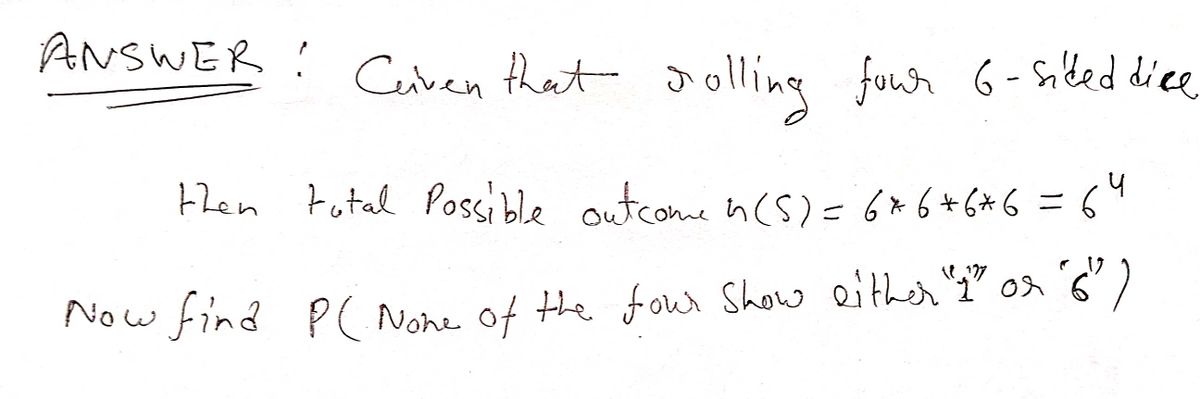 ANSWER : Given that rolling four 6-sided dice
then total Possible outcome n(S) = 6*6*6*6 = 6⁴
Now find P( None of the four Show either "1" or "6")